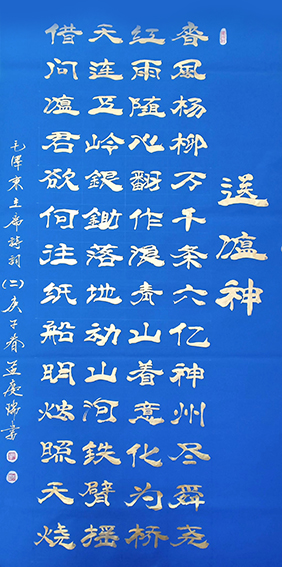 送瘟神
春風杨柳万千条六亿神州尽舜尧
红雨随心翻作浪青山着意化为桥
天连五岭银鋤落地动山河鉄臂摇
借问瘟君欲何往纸船明烛照天烧
毛澤東主席詩詞(二)庚子春孟慶瑞書